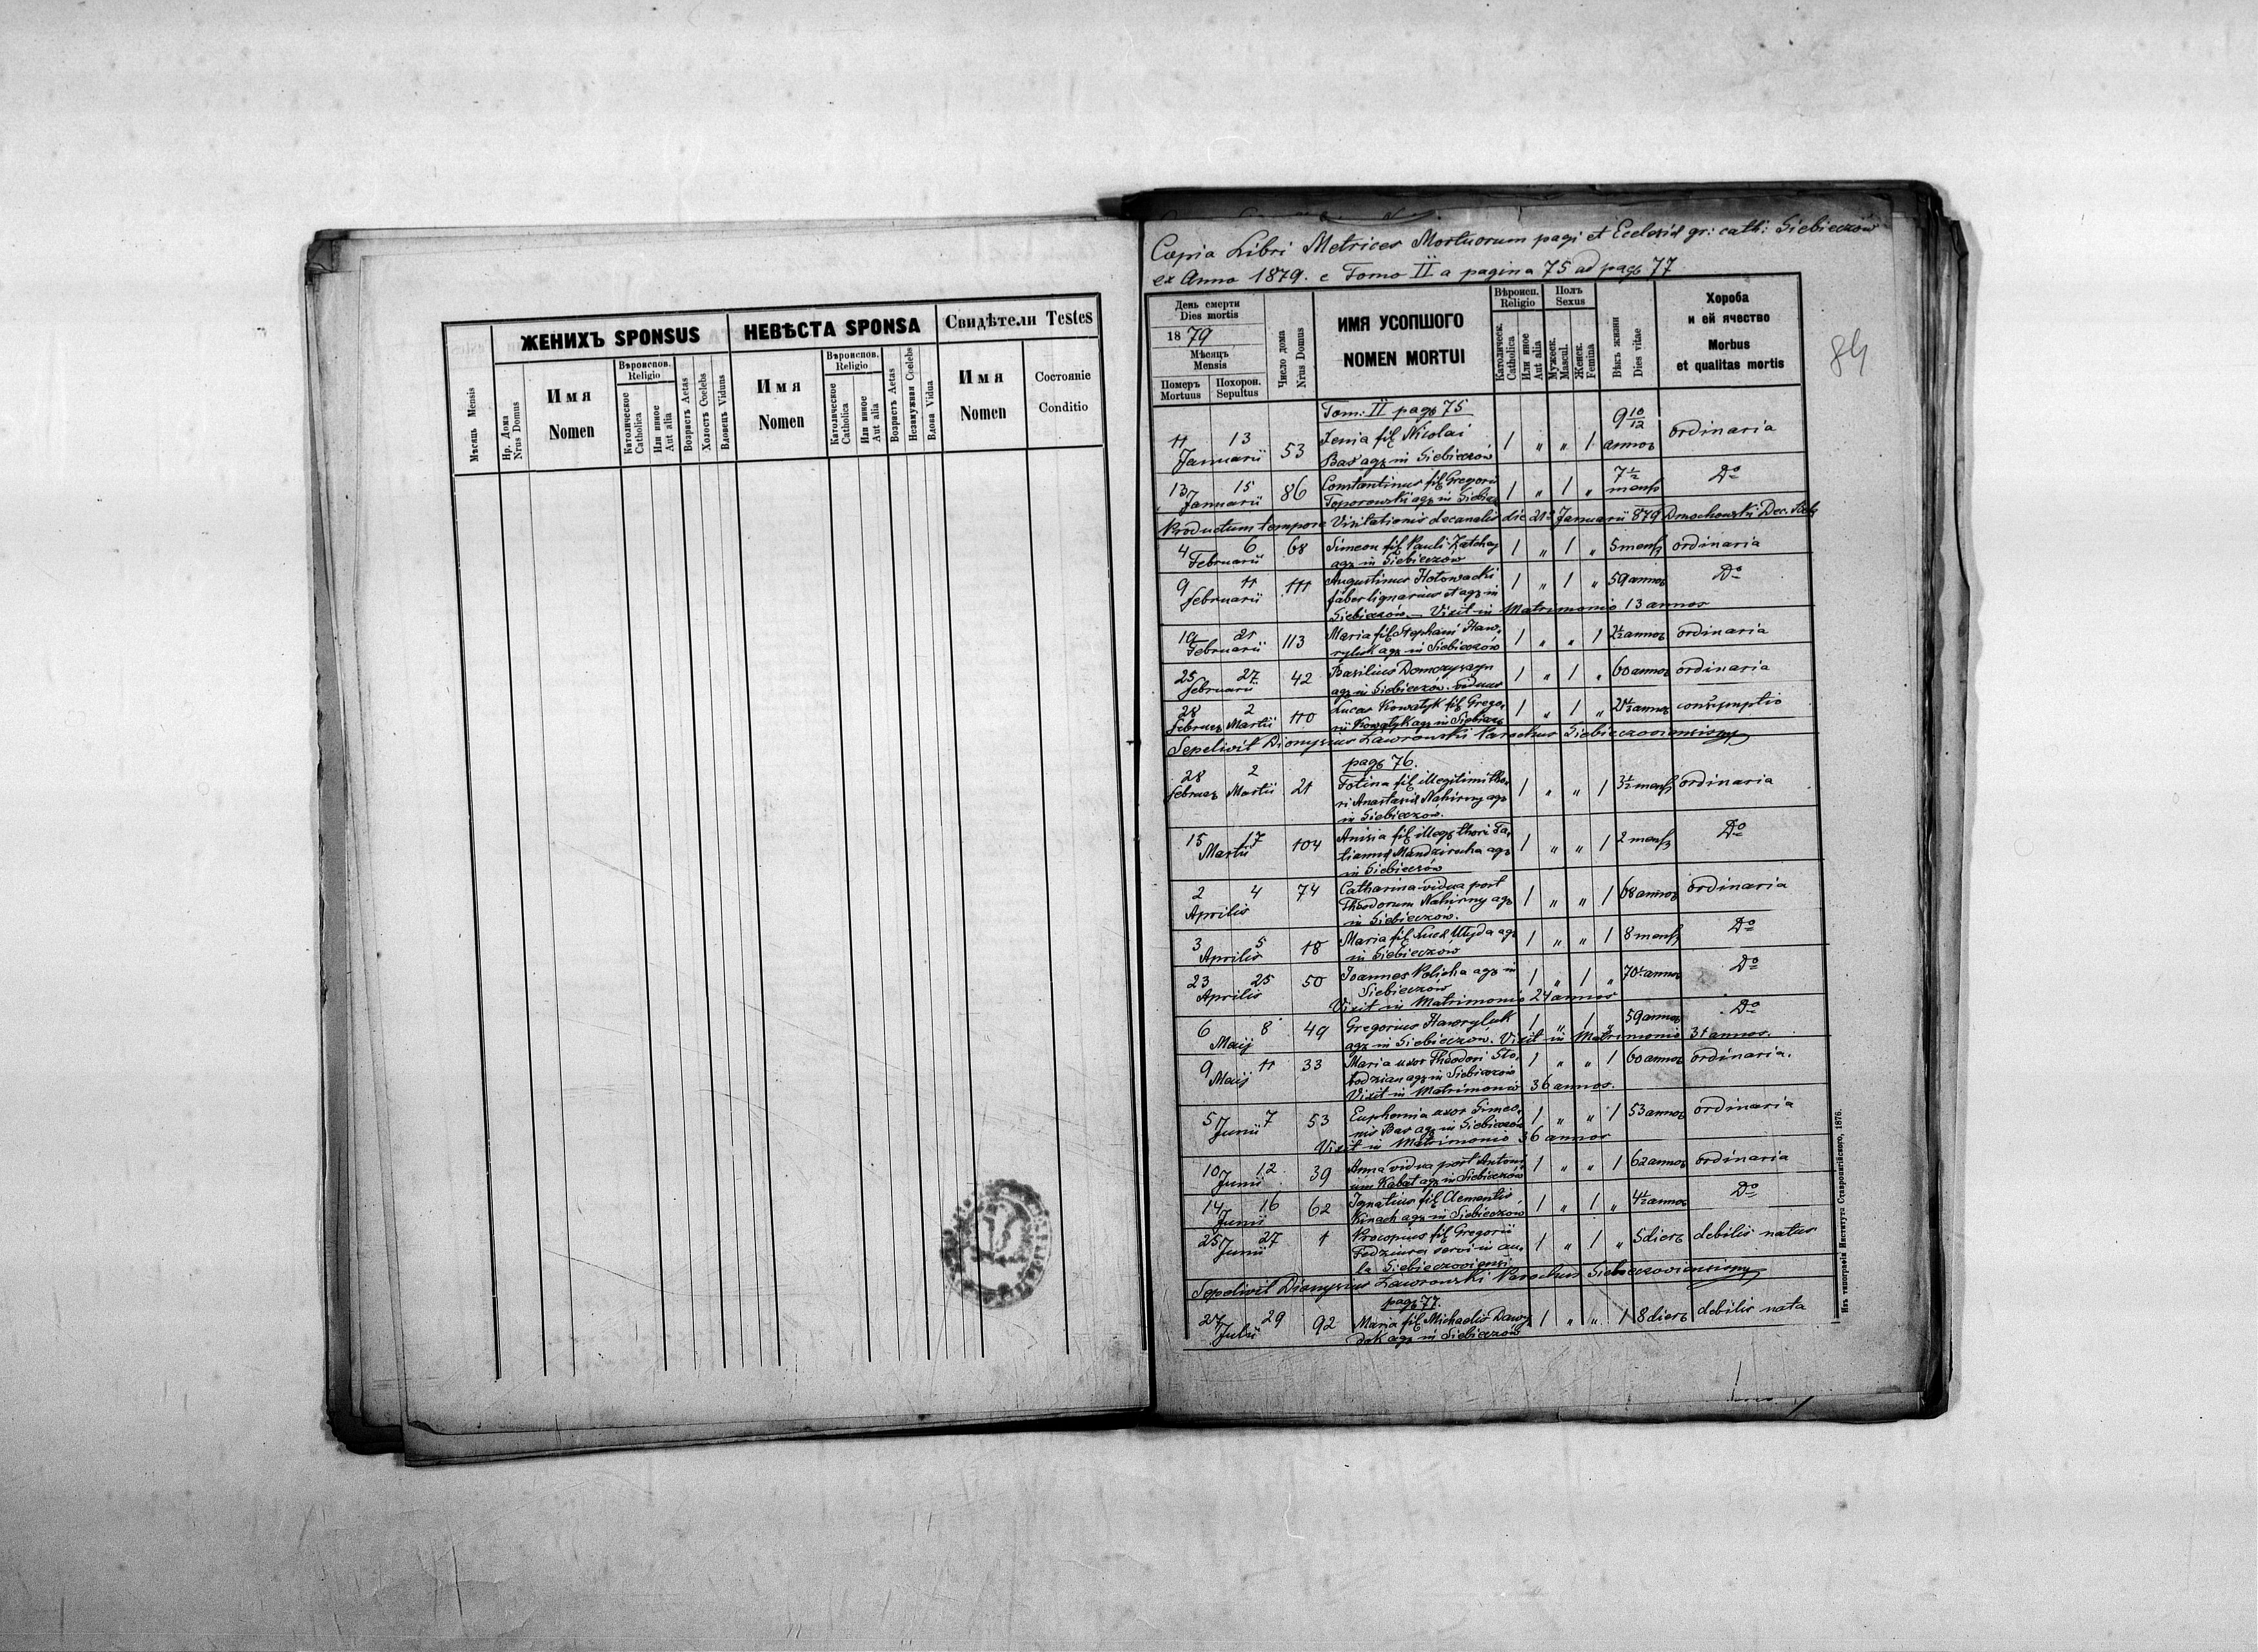 ЖЕНИХЪ SPONSUS
НЕВѢСТА SPONSA
Свидѣтели Testes
Мѣсяць Mensis
Нр. Дома
Nrus Domus
Имя
Nomen
Вѣроиспов.
Religio
Католическое
Catholica
Или иное
Aut alia
Возрасть Aetas
Холость Coelebs
Вдовець Viduus
Имя
Nomen
Вѣроиспов.
Religio
Католическое
Catholica
Или иное
Aut alia
Возрасть Aetas
Незамужная Coelebs
Вдова Vidua
Имя
Nomen
Состояніе
Conditio
Copia Libri Metrices Mortuorum pagi et Ecclesiæ gr: cath: Siebieczów
ex Anno 1879. e Tomo II a pagina 75 ad pag 77
84
День смерти
Dies mortis
1879
Мѣсяць
Mensis
Померъ
Mortuus
Похорон.
Sepultus
Число дома
Nrus Domus
ИМЯ УСОПШОГО
NOMEN MORTUI
Вѣроисп.
Religio
Католическ.
Catholica
Или иное
Aut alia
Полъ
Sexus
Мужеск.
Mascul.
Женск.
Femina
Вѣкъ жизни
Dies vitae
Хороба
и ей ячество
Morbus
et qualitas mortis
Tom: II pag 75
11 13 Januarii 53 Xenia fil Nicolai 1 " " 1 9 10/12 annor ordinaria
Bas agr in Siebieczów
13 15 Januarii 86 Constantinus fil Gregorii 1 " 1 " 7 1/2 mens Do
Toporowski agr in Siebiecz
Productum tempore Visitationis decanalis die 21 Januarii 879 Dmochowski Dec.
4 6 Februarii 68 Simeon fil Pauli 1 " 1 " 5 mens ordinaria
agr in Siebieczów
9 11 Februarii 111 Augustinus Hołowacki 1 " 1 " 59 annor Do
faber lignarius et agr in
Siebieczów – Vixit in Matrimonio 13 annos
19 21 Februarii 113 Maria fil Stephani Haw- 1 " " 1 2 1/2 annor ordinaria
ryluk agr in Siebieczów
25 27 Februarii 42 Basilius Domczyszyn 1 " 1 " 60 annor ordinaria
agr in Siebieczów. viduus
28 Februar 2 Martii 110 Lucas Kowalyk fil Grego- 1 " 1 " 2 1/2 annor consumptio
rii Kowalyk agr in Siebiecz
Sepelivit Dionysius Ławrowski Parochus Siebieczoviensis
pag 76.
28 Februar 2 Martii 21 Fotina fil illegitimi tho- 1 " " 1 3 1/2 mens ordinaria
ri Anastasiæ Nahirny agr
in Siebieczów.
15 17 Martii 104 Anisia fil illeg thori Ta- 1 " " 1 2 mens Do
tiannæ Mandziucha agr
in Siebieczów
2 4 Aprilis 74 Catharina vidua post 1 " " 1 68 annor ordinaria
Theodorum Nahirny agr
in Siebieczów.
3 5 Aprilis 18 Maria fil Lucæ agr 1 " " 1 8 mens Do
in Siebieczów
23 25 Aprilis 50 Joannes Policha agr in 1 " 1 " 70 annor Do
Siebieczów
Vixit in Matrimonio 24 annos
6 8 Maij 49 Gregorius Hawryluk 1 " 1 " 59 annor Do
agr in Siebieczów. Vixit in Matrimonio 31 annos.
9 11 Maij 33 Maria uxor Theodori Sto- 1 " " 1 60 annor ordinaria.
łodzian agr in Siebieczów
Vixit in Matrimonio 36 annos.
5 7 Junii 53 Euphemia uxor Simeo- 1 " " 1 53 annor ordinaria
nis Bas agr in Siebieczów
Vixit in Matrimonio 36 annos
10 12 Junii 39 Anna vidua post Antoni- 1 " " 1 62 annor ordinaria
um Kabat agr in Siebieczów
14 16 Junii 62 Ignatius fil Clementis 1 " 1 " 4 1/2 annor Do
Kinach agr in Siebieczów
25 27 Junii 1 Procopius fil Gregorii 1 " 1 " 5 dier debilis natus
Fedziura servi in au-
la Siebieczoviensi
Sepelivit Dionysius Ławrowski Parochus Siebieczoviensis
pag 77.
27 29 Julii 92 Maria fil Michaelis Dawy- 1 " " 1 8 dier debilis nata
dok agr in Siebieczów
Изъ типографіи Института Ставропигійского, 1876.